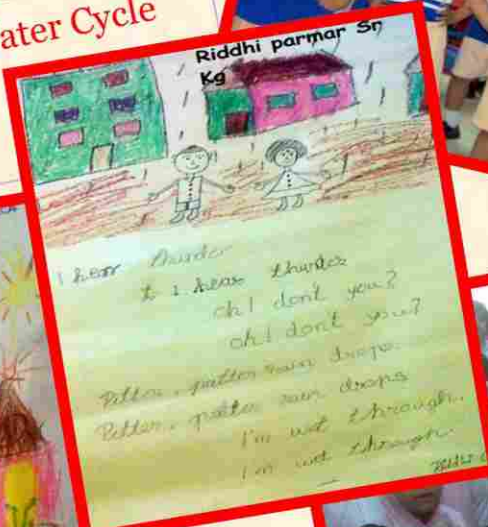 ater Cycle
Riddhi parmar Sr
Kg
I hear thunder
I hear thunder
oh! don't you?
oh! don't you?
Pitter, patter rain drops.
Pitter, patter rain drops
I'm wet through.
I'm wet through.